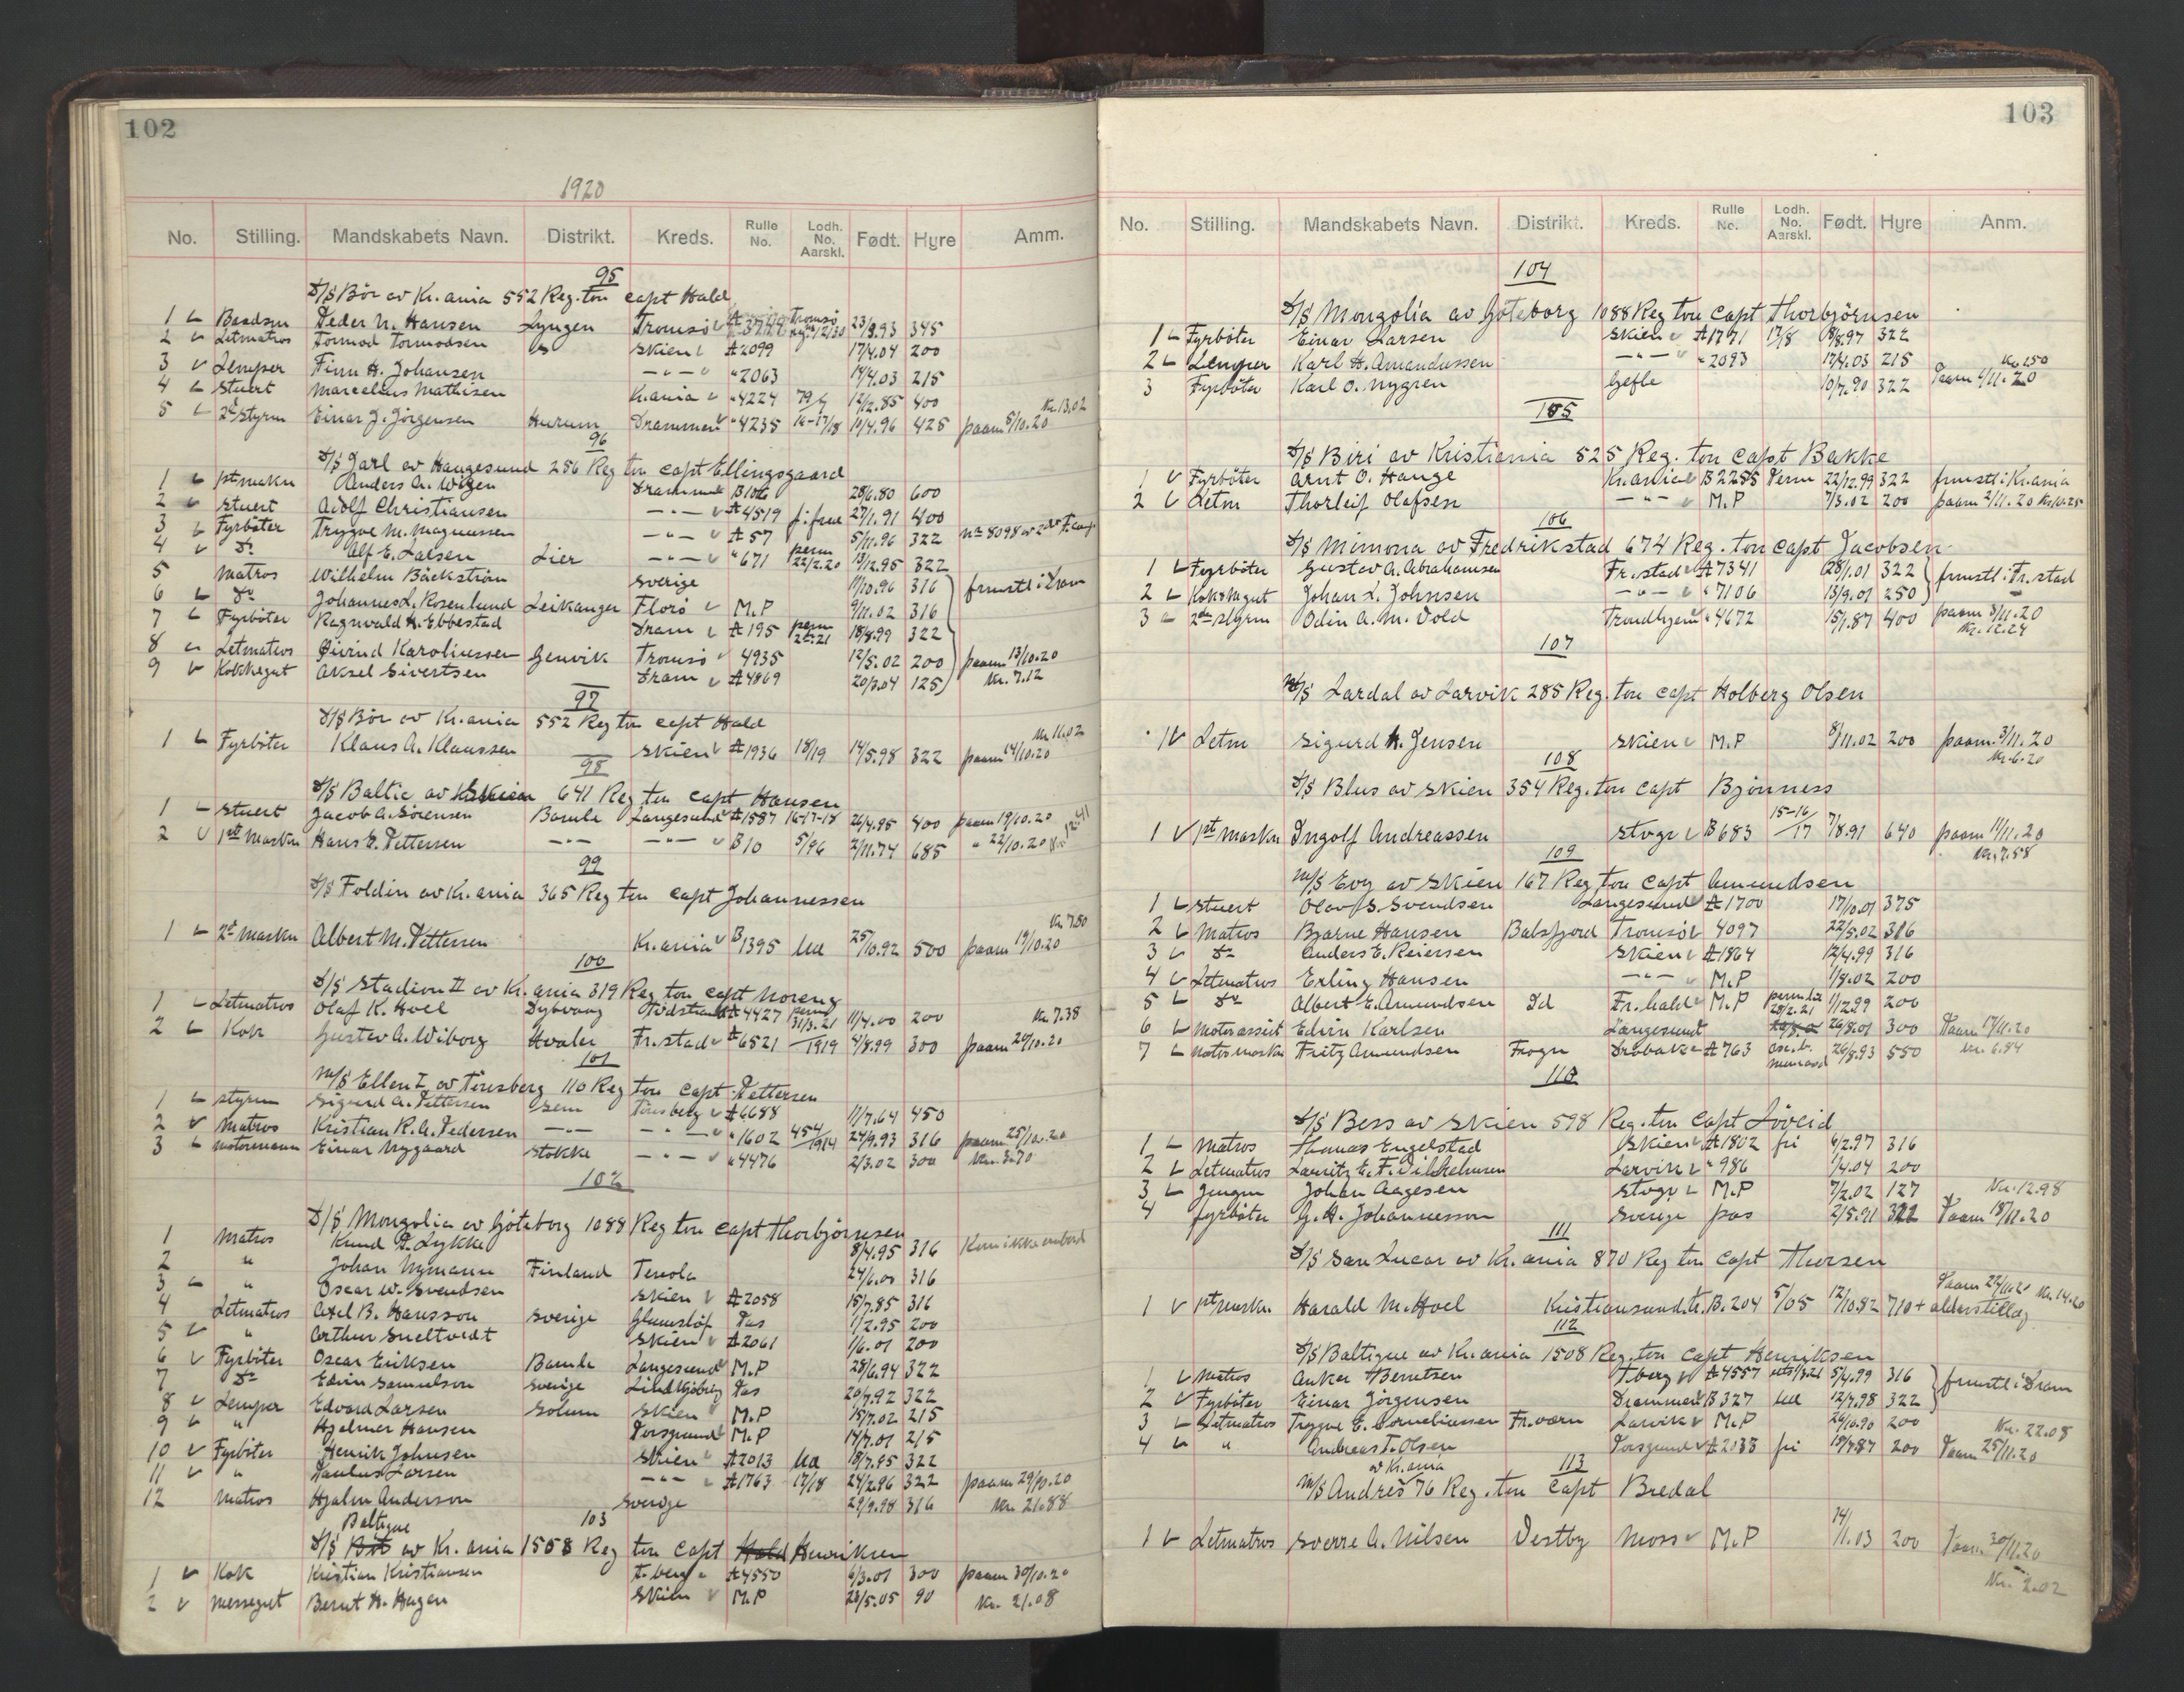 102
1920
No. Stilling. Mandskabets Navn. Distrikt. Kreds. Rulle No. Lodh. No. Aarskl. Født. Hyre Amm.
95
D/S Bör av Kr.ania 552 Reg. ton capt Hald
1 Baadsm Peder N. Hansen Lyngen Tromsö 23/9.93 345
2 Letmatros Tormod Tormodsen Skien A 2099 17/4.04 200
3 Lemper Finn H. Johansen —"— "2063 14/4.03 215
4 Stuert Marcelius Mathisen Kr.ania "4224 12/2.85 400
5 2d Styrm Einar J. Jörgensen Hurum Drammen "4235 16-17/18 10/4.96 425 paam 5/10.20 Kr. 13.02
96
D/S Jarl av Haugesund 256 Reg ton capt Ellingsgaard
1 1st maskn Anders A. Wigen Drammen B 106 28/6.80 600
2 Stuert Adolf Christiansen —"— A 4519 27/1.91 400
3 Fyrböter Trygve M. Magnussen —"— A 57 5/11.96 322
4 Do Alf E. Larsen Lier —"— "671 perm 22/2.20 19/12.95 322
5 Matros Wilhelm Bäckström Sverige 11/10.96 316
6 Do Johannes L. Rosenlund Leikanger Florö M.P 9/11.02 316 frmstl i Dram
7 Fyrböter Ragnvald A. Ebbestad Dram A 195 perm 18/8.99 322
8 Letmatros Øivind Karoliussen Genvik Tromsö 4935 12/5.02 200 paam 13/10.20
9 Kokkegut Aksel Sivertsen Dram A 4869 20/3.04 125 Kr. 7.12
97
D/S Bör av Kr.ania 552 Reg ton capt Hald
1 Fyrböter Klaus A. Klaussen Skien A 1936 18/19 14/5.98 322 paam 14/10.20 Kr. 11.02
98
D/S Baltic av Skien 641 Reg ton capt Hansen
1 Stuert Jacob A. Sörensen Bamle Langesund A 1587 16-17-18 26/4.95 400 paam 19/10.20
2 1st Maskn Hans E. Pettersen —"— —"— B 10 5/96 2/11.74 685 " 22/10.20 Kr. 12.41
99
D/S Foldin av Kr.ania 365 Reg ton capt Johannessen
1 2d maskn Albert M. Pettersen Kr.ania B 1395 25/10.92 500 paam 19/10.20 Kr. 7.80
100
D/S Stadion II av Kr.ania 319 Reg ton capt Noreng
1 Letmatros Olaf K. Hoel Dybvaag A 4427 perm 31/3.21 11/4.00 200
2 Kok Gustav A. Wiborg Hvaler Fr.stad A 6521 1919 4/8.99 300 paam 20/10.20 Kr. 7.38
101
M/S Ellen I av Tönsberg 110 Reg ton capt Pettersen
1 Styrm Sigurd A. Pettersen Sem Tönsberg A 6688 11/7.64 450
2 Matros Kristian R. A. Pedersen —"— —"— "1602 454/1914 24/9.93 316 paam 25/10.20
3 Motormann Einar Nygaard Stokke —"— "4476 2/3.02 300 Kr. 3.70
102
D/S Mongolia av Göteborg 1088 Reg ton capt Thorbjörnsen
1 Matros Knud P. Lykke 8/4.95 316 Kom ikke ombord
2 " Johan Nymann Finland Tenola 24/6.00 316
3 " Oscar W. Svendsen Skien A 2058 15/7.85 316
4 Letmatros Axel B. Hansson Sverige Glumslöf Pas 1/2.95 200
5 " Arthur Sneltvedt Skien A 2061 1/6.01 200
6 Fyrböter Oscar Eriksen Bamle Langesund M.P 28/6.94 322
7 Do Edvin Samuelson Sverige Lindkjöbing Pas 20/7.92 322
8 Lemper Edvard Larsen Solum Skien M.P 15/7.02 215
9 " Hjalmar Hansen Porsgrund M.P 14/7.01 215
10 Fyrböter Henrik Johnsen Skien A 2013 18/7.95 322
11 " Paulus Larsen —"— A 1763 17/18 24/2.96 322 paam 29/10.20
12 Matros Hjalm Anderson Sverige 29/9.98 316 Kr. 21.88
103
Baltique
D/S Bör av Kr.ania 1508 Reg ton capt Hald Henriksen
1 Kok Kristian Kristiansen T.berg A 4550 6/3.01 300 paam 30/10.20
2 Messegut Bernt H. Hagen Skien M.P 23/5.05 90 Kr. 21.08
103
No. Stilling. Mandskabets Navn. Distrikt. Kreds. Rulle No. Lodh. No. Aarskl. Født. Hyre Anm.
104
D/S Mongolia av Göteborg 1088 Reg ton capt Thorbjörnsen
1 Fyrböter Einar Larsen Skien A 1771 17/8 8/8.97 322
2 Lemper Karl H. Amandussen —"— "2093 17/4.03 215 Kr. 1.50
3 Fyrböter Karl O. Nygren Gefle 10/7.90 322 Paam 1/11.20
105
D/S Biri av Kristiania 525 Reg. ton capt Bakke
1 Fyrböter Arnt O. Hauge Kr.ania B 2255 Perm 22/12.99 322 frmstl i Kr.ania
2 Letm Thorleif Olafsen —"— M.P 7/3.02 200 paam 2/11.20 Kr. 10.25
106
D/S Mimona av Fredrikstad 674 Reg. ton capt Jacobsen
1 Fyrböter Gustav A. Abrahamsen Fr.stad A 7341 28/1.01 322 frmstl i Fr.stad
2 Kokkegut Johan L. Johnsen —"— "7106 13/9.01 250
3 2den styrm Odin A. M. Vold Trondhjem "4672 15/1.87 400 paam 3/11.20 Kr. 12.24
107
M/S Lardal av Larvik 285 Reg. ton capt Holberg Olsen
1 Letm Sigurd A. Jensen Skien M.P 8/11.02 200 paam. 3/11.20 Kr. 6.20
108
D/S Blus av Skien 354 Reg. ton capt Bjönness
1 1st Maskn Ingolf Andreassen Stvgr B 683 15-16/17 7/8.91 640 paam 11/11.20 Kr. 7.58
109
M/S Evy av Skien 167 Reg ton capt Amundsen
1 Stuert Olav S. Svendsen Langesund A 1700 17/10.01 375
2 Matros Bjarne Hansen Balsfjord Tromsö 4097 22/5.02 316
3 Do Anders E. Reiersen Skien A 1864 12/4.99 316
4 Letmatros Erling Hansen —"— M.P 1/8.02 200
5 Do Albert E. Amundsen Id Fr.hald M.P 28/2.21 1/12.99 200
6 Motorassist Edvin Karlsen Langesund 26/8.01 300 Paam 17/11.20
7 Motormaskn Fritz Amundsen Frogn Dröbak A 763 26/8.93 550 Kr. 6.84
110
D/S Bess av Skien 598 Reg. ton capt Löveid
1 Matros Thomas Engelstad Skien A 1802 fri 6/2.97 316
2 Letmatros Lauritz E. F. Vilhelmsen Larvik "986 1/4.04 200
3 Jungm Johan Aagesen Stvgr M.P 7/2.02 127 Kr. 12.98
4 Fyrböter G. A. Johannesson Sverige pas 2/5.91 322 Paam 18/11.20
111
D/S San Lucar av Kr.ania 870 Reg ton capt Thorsen
1 1st maskn Harald M. Hoel Kristiansund. N. B. 204 5/05 12/10.82 710 + alderstillæg Paam 22/11.20 Kr. 14.20
112
D/S Baltique av Kr.ania 1508 Reg. ton capt Henriksen
1 Matros Anker Berntsen T.berg A 4557 5/4.99 316 frmstl i Dram
2 Fyrböter Einar Jörgensen Drammen B 327 12/7.98 322
3 Letmatros Trygve E. Corneliussen Fr.værn Larvik M.P 26/10.90 200 Kr. 22.08
4 " Andreas T. Olsen Porsgrund A 2033 fri 19/7.87 200 Paam 25/11.20
113
av Kr.ania
M/S Andrés 76 Reg. ton capt Bredal
1 Letmatros Sverre A. Nilsen Vestby Moss M.P 14/1.03 200 Paam 30/11.20 Kr. 2.02